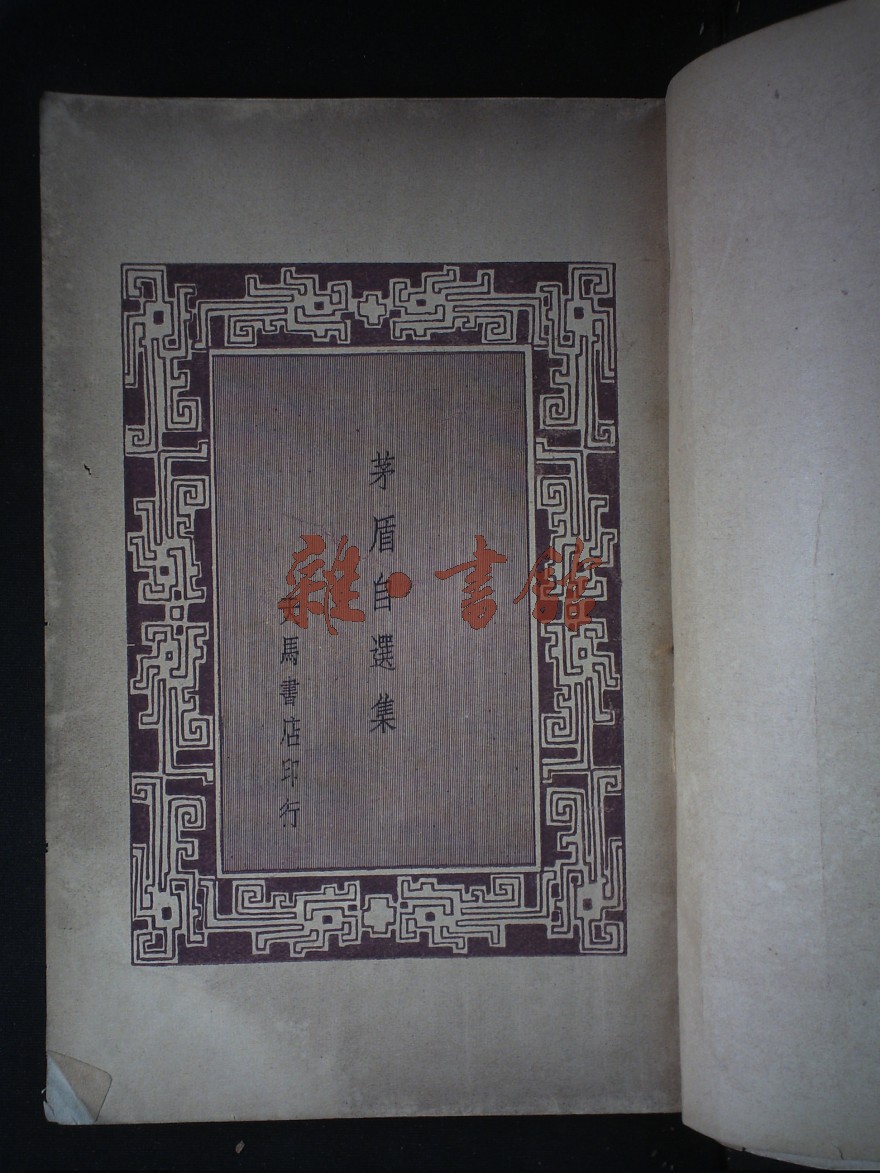 茅盾自選集
天馬書店印行
雜·書館